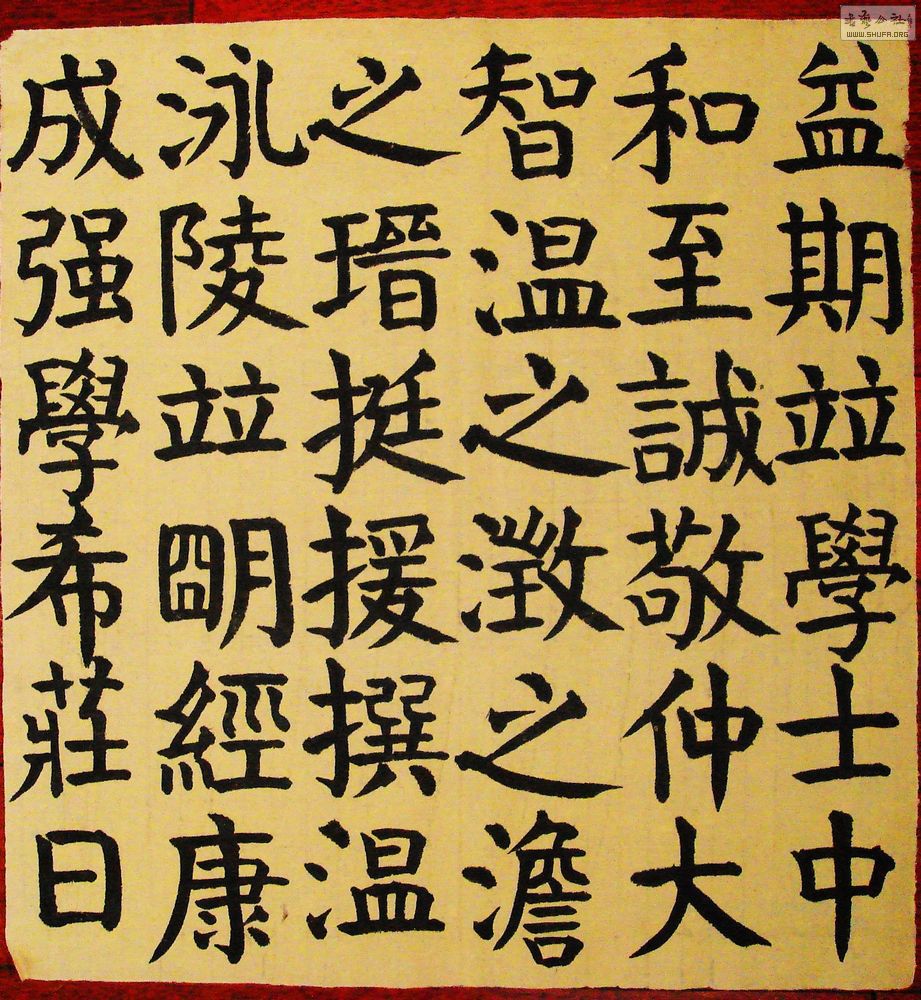 益期竝學士中
和至誠敬仲大
智温之澂之澹
之瑨挺援撰温
泳陵竝朙經康
成强學希莊日
WWW.SHUFA.ORG